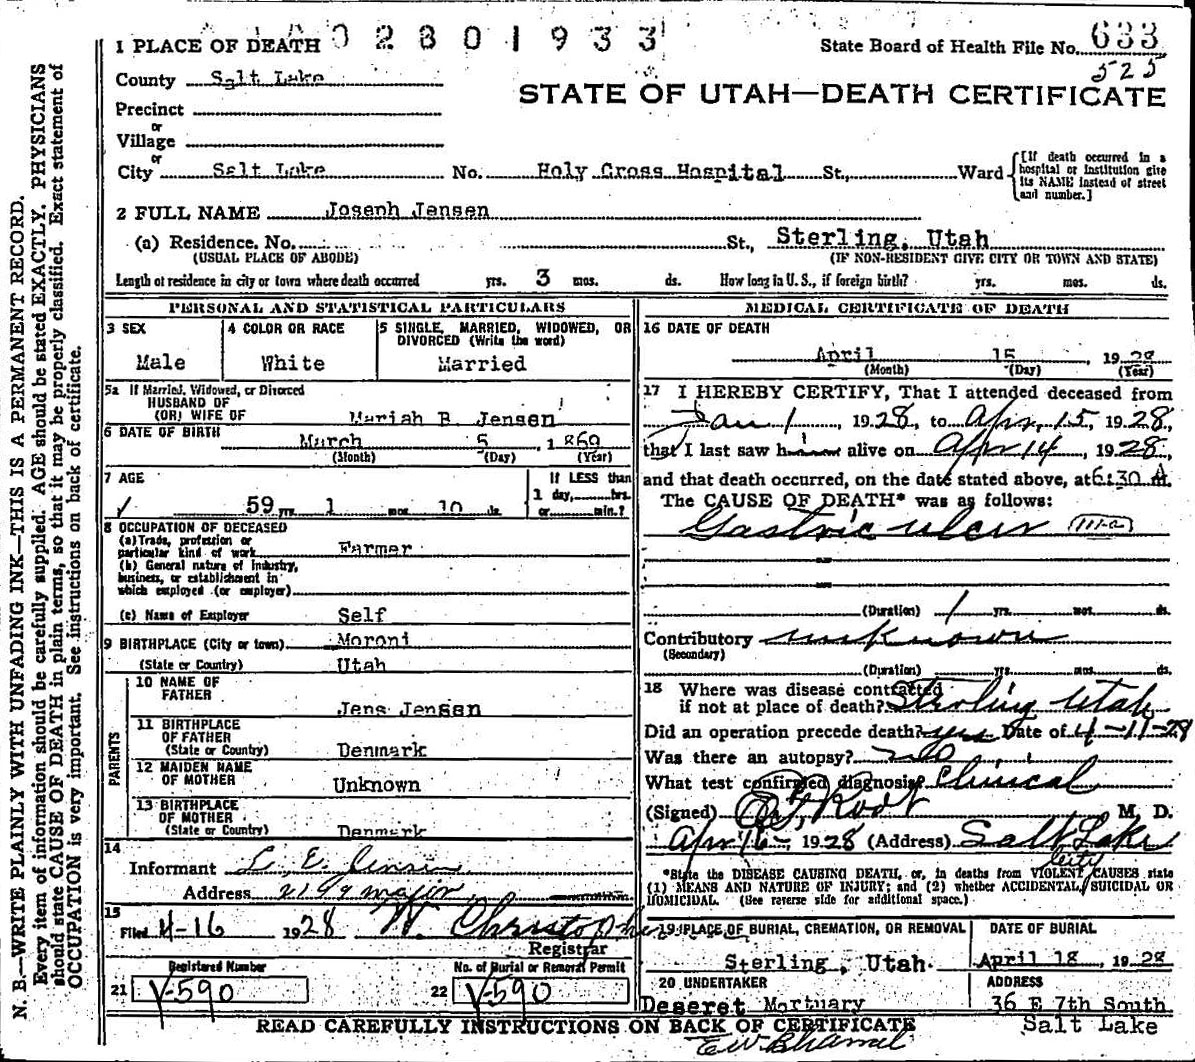 N. B.—WRITE PLAINLY WITH UNFADING INK—THIS IS A PERMANENT RECORD.
Every item of information should be carefully supplied. AGE should be stated EXACTLY. PHYSICIANS
should state CAUSE OF DEATH in plain terms, so that it may be properly classified. Exact statement of
OCCUPATION is very important. See instructions on back of certificate.
0 2 8 0 1 9 3 3
State Board of Health File No. 633
525
1 PLACE OF DEATH
County Salt Lake
STATE OF UTAH—DEATH CERTIFICATE
Precinct
or
Village
or
City Salt Lake No. Holy Cross Hospital St., Ward
[If death occurred in a hospital or institution give its NAME instead of street and number.]
2 FULL NAME Joseph Jensen
(a) Residence. No. St., Sterling, Utah
(USUAL PLACE OF ABODE) (IF NON-RESIDENT GIVE CITY OR TOWN AND STATE)
Length of residence in city or town where death occurred yrs. 3 mos. ds. How long in U. S., if foreign birth? yrs. mos. ds.
PERSONAL AND STATISTICAL PARTICULARS
3 SEX
Male
4 COLOR OR RACE
White
5 SINGLE, MARRIED, WIDOWED, OR
DIVORCED (Write the word)
Married
5a If Married, Widowed, or Divorced
HUSBAND OF
(OR) WIFE OF Mariah B. Jensen
6 DATE OF BIRTH
March 5, 1869
(Month) (Day) (Year)
7 AGE
59 yrs. 1 mos. 10 ds.
If LESS than
1 day, hrs.
or min.?
8 OCCUPATION OF DECEASED
(a) Trade, profession or
particular kind of work Farmer
(b) General nature of Industry,
business, or establishment in
which employed (or employer)
(c) Name of Employer Self
9 BIRTHPLACE (City or town) Moroni
(State or Country) Utah
PARENTS
10 NAME OF
FATHER Jens Jensen
11 BIRTHPLACE
OF FATHER
(State or Country) Denmark
12 MAIDEN NAME
OF MOTHER Unknown
13 BIRTHPLACE
OF MOTHER
(State or Country) Denmark
14
Informant L. E. Jensen
Address 2199 major
15
Filed 4-16 1928 W. Christopher
Registrar
Registered Number
21 V-590
No. of Burial or Removal Permit
22 V-590
MEDICAL CERTIFICATE OF DEATH
16 DATE OF DEATH
April 15 1928
(Month) (Day) (Year)
17 I HEREBY CERTIFY, That I attended deceased from
Jan 1, 1928, to Apr, 15, 1928,
that I last saw him alive on Apr 14, 1928,
and that death occurred, on the date stated above, at 6:30 A.
The CAUSE OF DEATH* was as follows:
Gastric ulcer 111-a
(Duration) 1 yrs. mos. ds.
Contributory unknown
(Secondary)
(Duration) yrs. mos. ds.
18 Where was disease contracted
if not at place of death? Sterling Utah
Did an operation precede death? yes Date of 4-11-28
Was there an autopsy? no
What test confirmed diagnosis? Clinical
(Signed) Root M. D.
Apr 16, 1928 (Address) Salt Lake
City
*State the DISEASE CAUSING DEATH, or, in deaths from VIOLENT CAUSES state
(1) MEANS AND NATURE OF INJURY; and (2) whether ACCIDENTAL, SUICIDAL OR
HOMICIDAL. (See reverse side for additional space.)
19 PLACE OF BURIAL, CREMATION, OR REMOVAL
Sterling, Utah.
DATE OF BURIAL
April 18, 1928
20 UNDERTAKER
Deseret Mortuary
ADDRESS
36 E 7th South
Salt Lake
READ CAREFULLY INSTRUCTIONS ON BACK OF CERTIFICATE